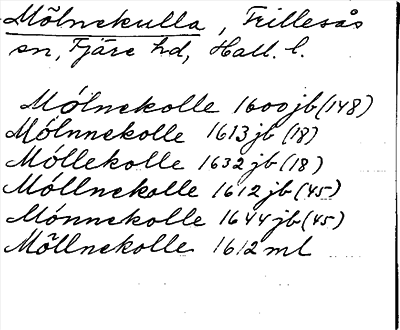 Mölnekulla, Frillesås
sn, Fjäre hd, Hall. l.
Mólnekolle 1600 jb (148)
Mólnnekolle 1613 jb (18)
Móllekolle 1632 jb (18)
Móllnekolle 1612 jb (45)
Mónnekolle 1644 jb (45)
Möllnekolle 1612 ml